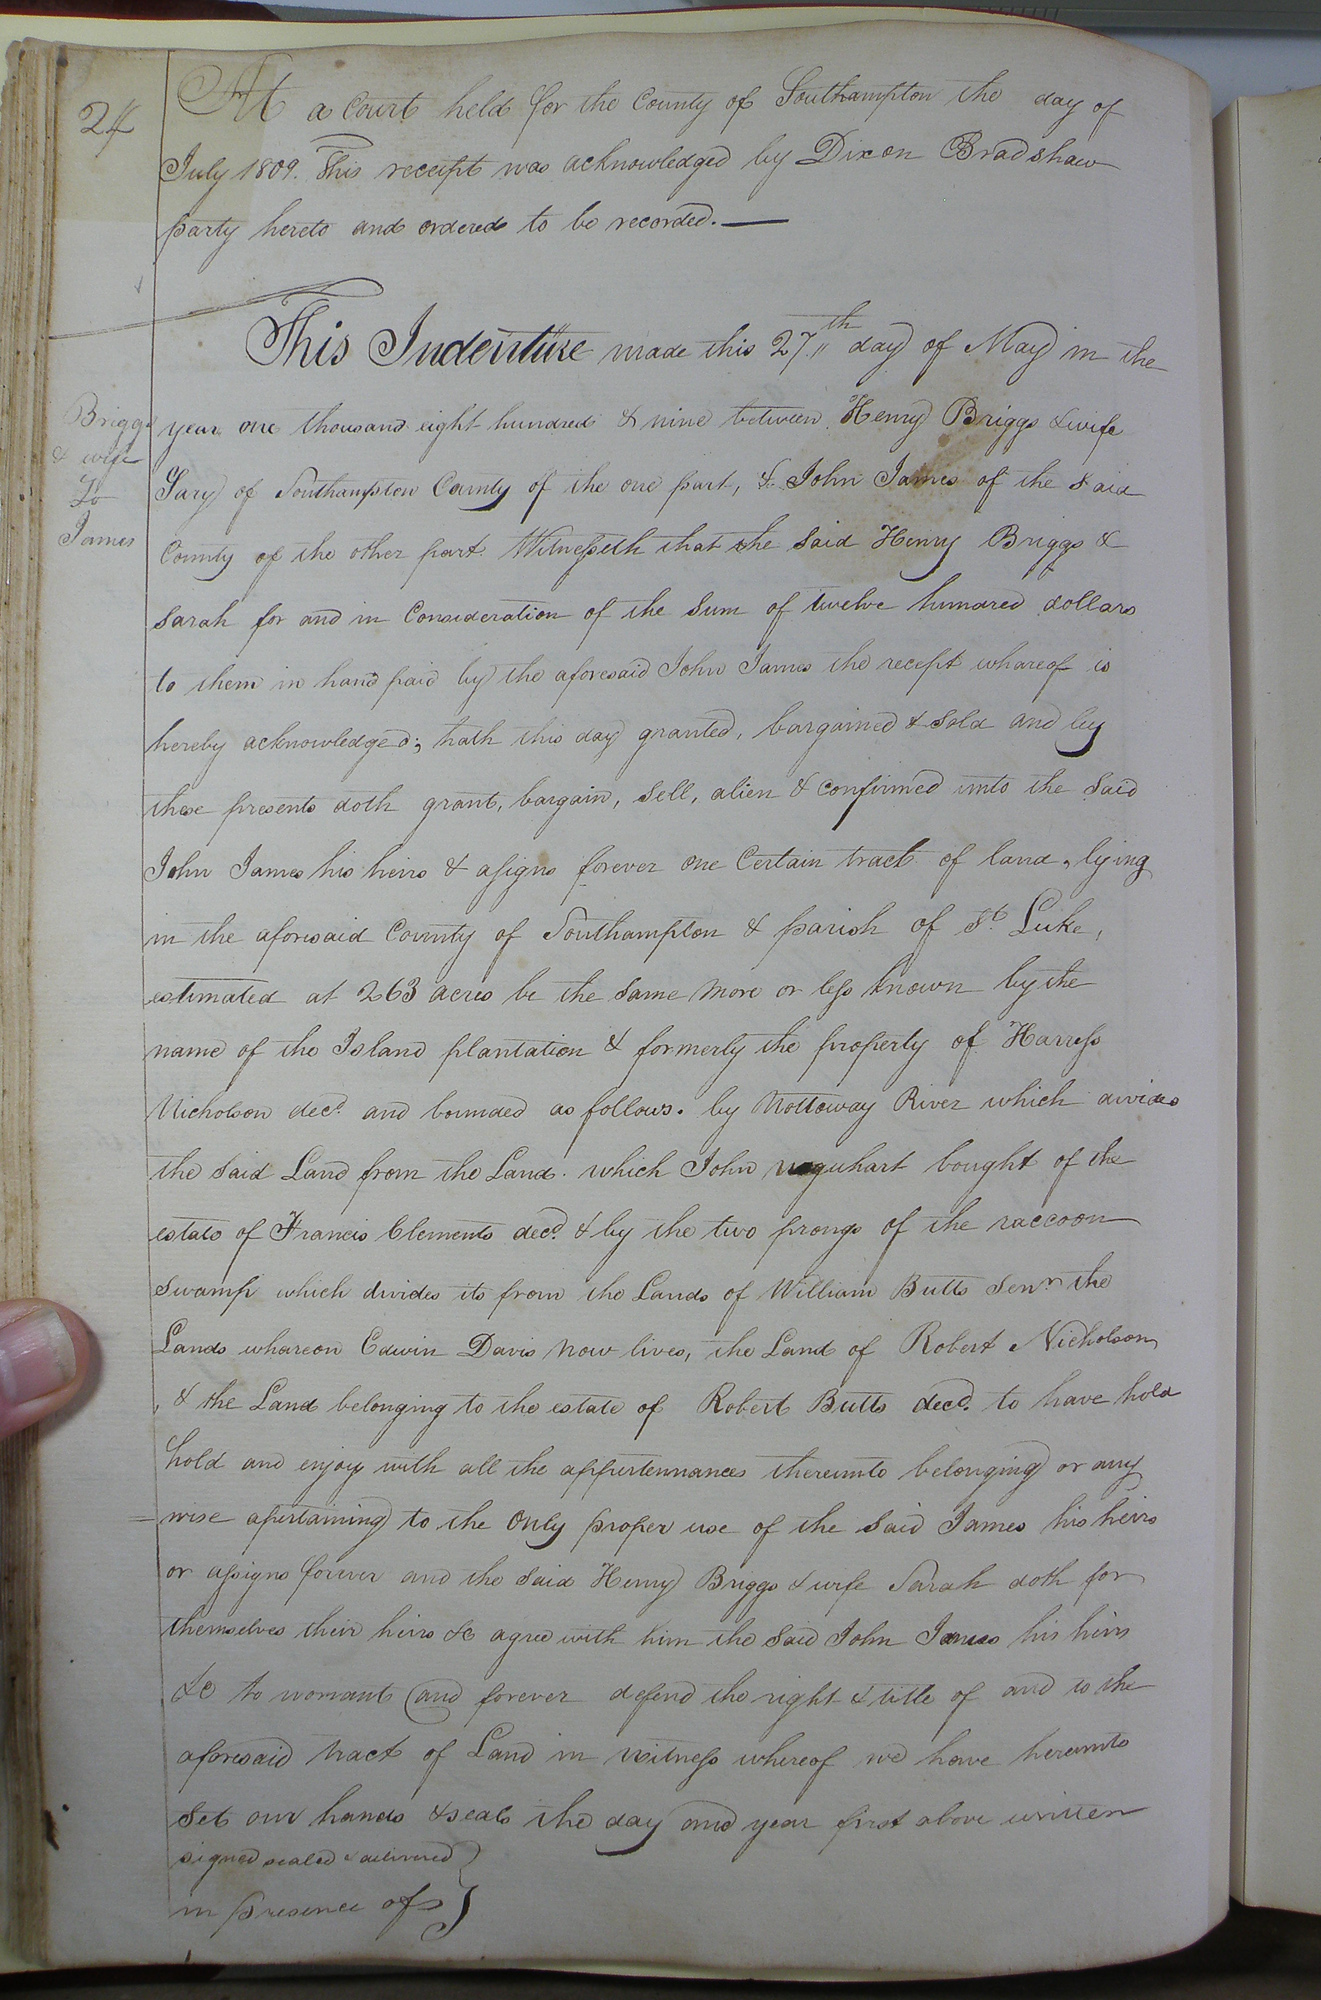 24
At a Court held for the County of Southampton the day of
July 1809. This receipt was acknowledged by Dixon Bradshaw
party hereto and ordered to be recorded. —
This Indenture made this 27th day of May in the
Briggs
& wife
To
James
year one thousand eight hundred & nine between Henry Briggs & wife
Sary of Southampton County of the one part, & John James of the said
County of the other part. Witnesseth that the said Henry Briggs &
Sarah for and in Consideration of the Sum of twelve hundred dollars
to them in hand paid by the aforesaid John James the recept whareof is
hereby acknowledged; hath this day granted, bargained & Sold and by
these presents doth grant, bargain, Sell, alien & confirmed unto the Said
John James his heirs & asigns forever one Certain tract of land, lying
in the aforesaid County of Southampton & parish of St. Luke,
estimated at 263 acres be the Same more or less known by the
name of the Island plantation & formerly the property of Harress
Nicholson decd. and bounded as follows. by Nottoway River which divides
the Said Land from the Land which John Urquhart bought of the
estate of Francis Clements decd. & by the two prongs of the raccoon
Swamp which divides its from the Lands of William Butts Senr. the
Lands whareon Edwin Davis now lives, the Land of Robert Nicholson
, & the Land belonging to the estate of Robert Butts decd. to have hold
hold and enjoy with all the appurtennances thereunto belonging or any
wise apertaining to the Only proper use of the Said James his heirs
or assigns forever and the Said Henry Briggs & wife Sarah doth for
themselves their heirs &c agree with him the Said John James his heirs
&c to worrant and forever defend the right & title of and to the
aforesaid tract of Land in witness whereof we have hereunto
Set our hands & seals the day and year first above written
signed sealed & delivered }
in presence of }